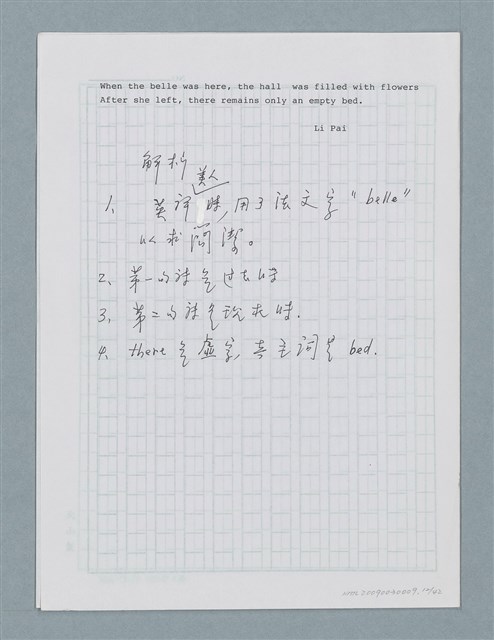 When the belle was here, the hall  was filled with flowers
After she left, there remains only an empty bed.
Li Pai
解析
美人
1、 英译 时，用了法文字 "belle"
以求简潔。
2、第一句詩是过去時
3、第二句詩是現在時.
4. there是虚字，真主词是 bed.